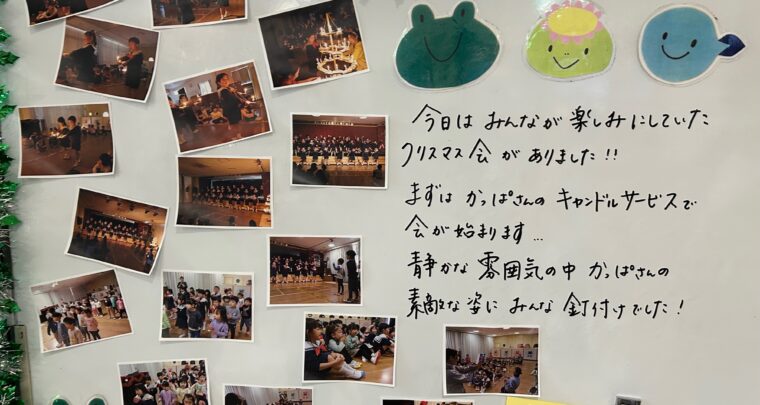 今日は みんなが 楽しみにしていた
クリスマス会 が ありました!!
まずは かっぱさんの キャンドルサービスで
会が 始まります...
静かな 雰囲気の中 かっぱさんの
素敵な姿に みんな 釘付けでした!